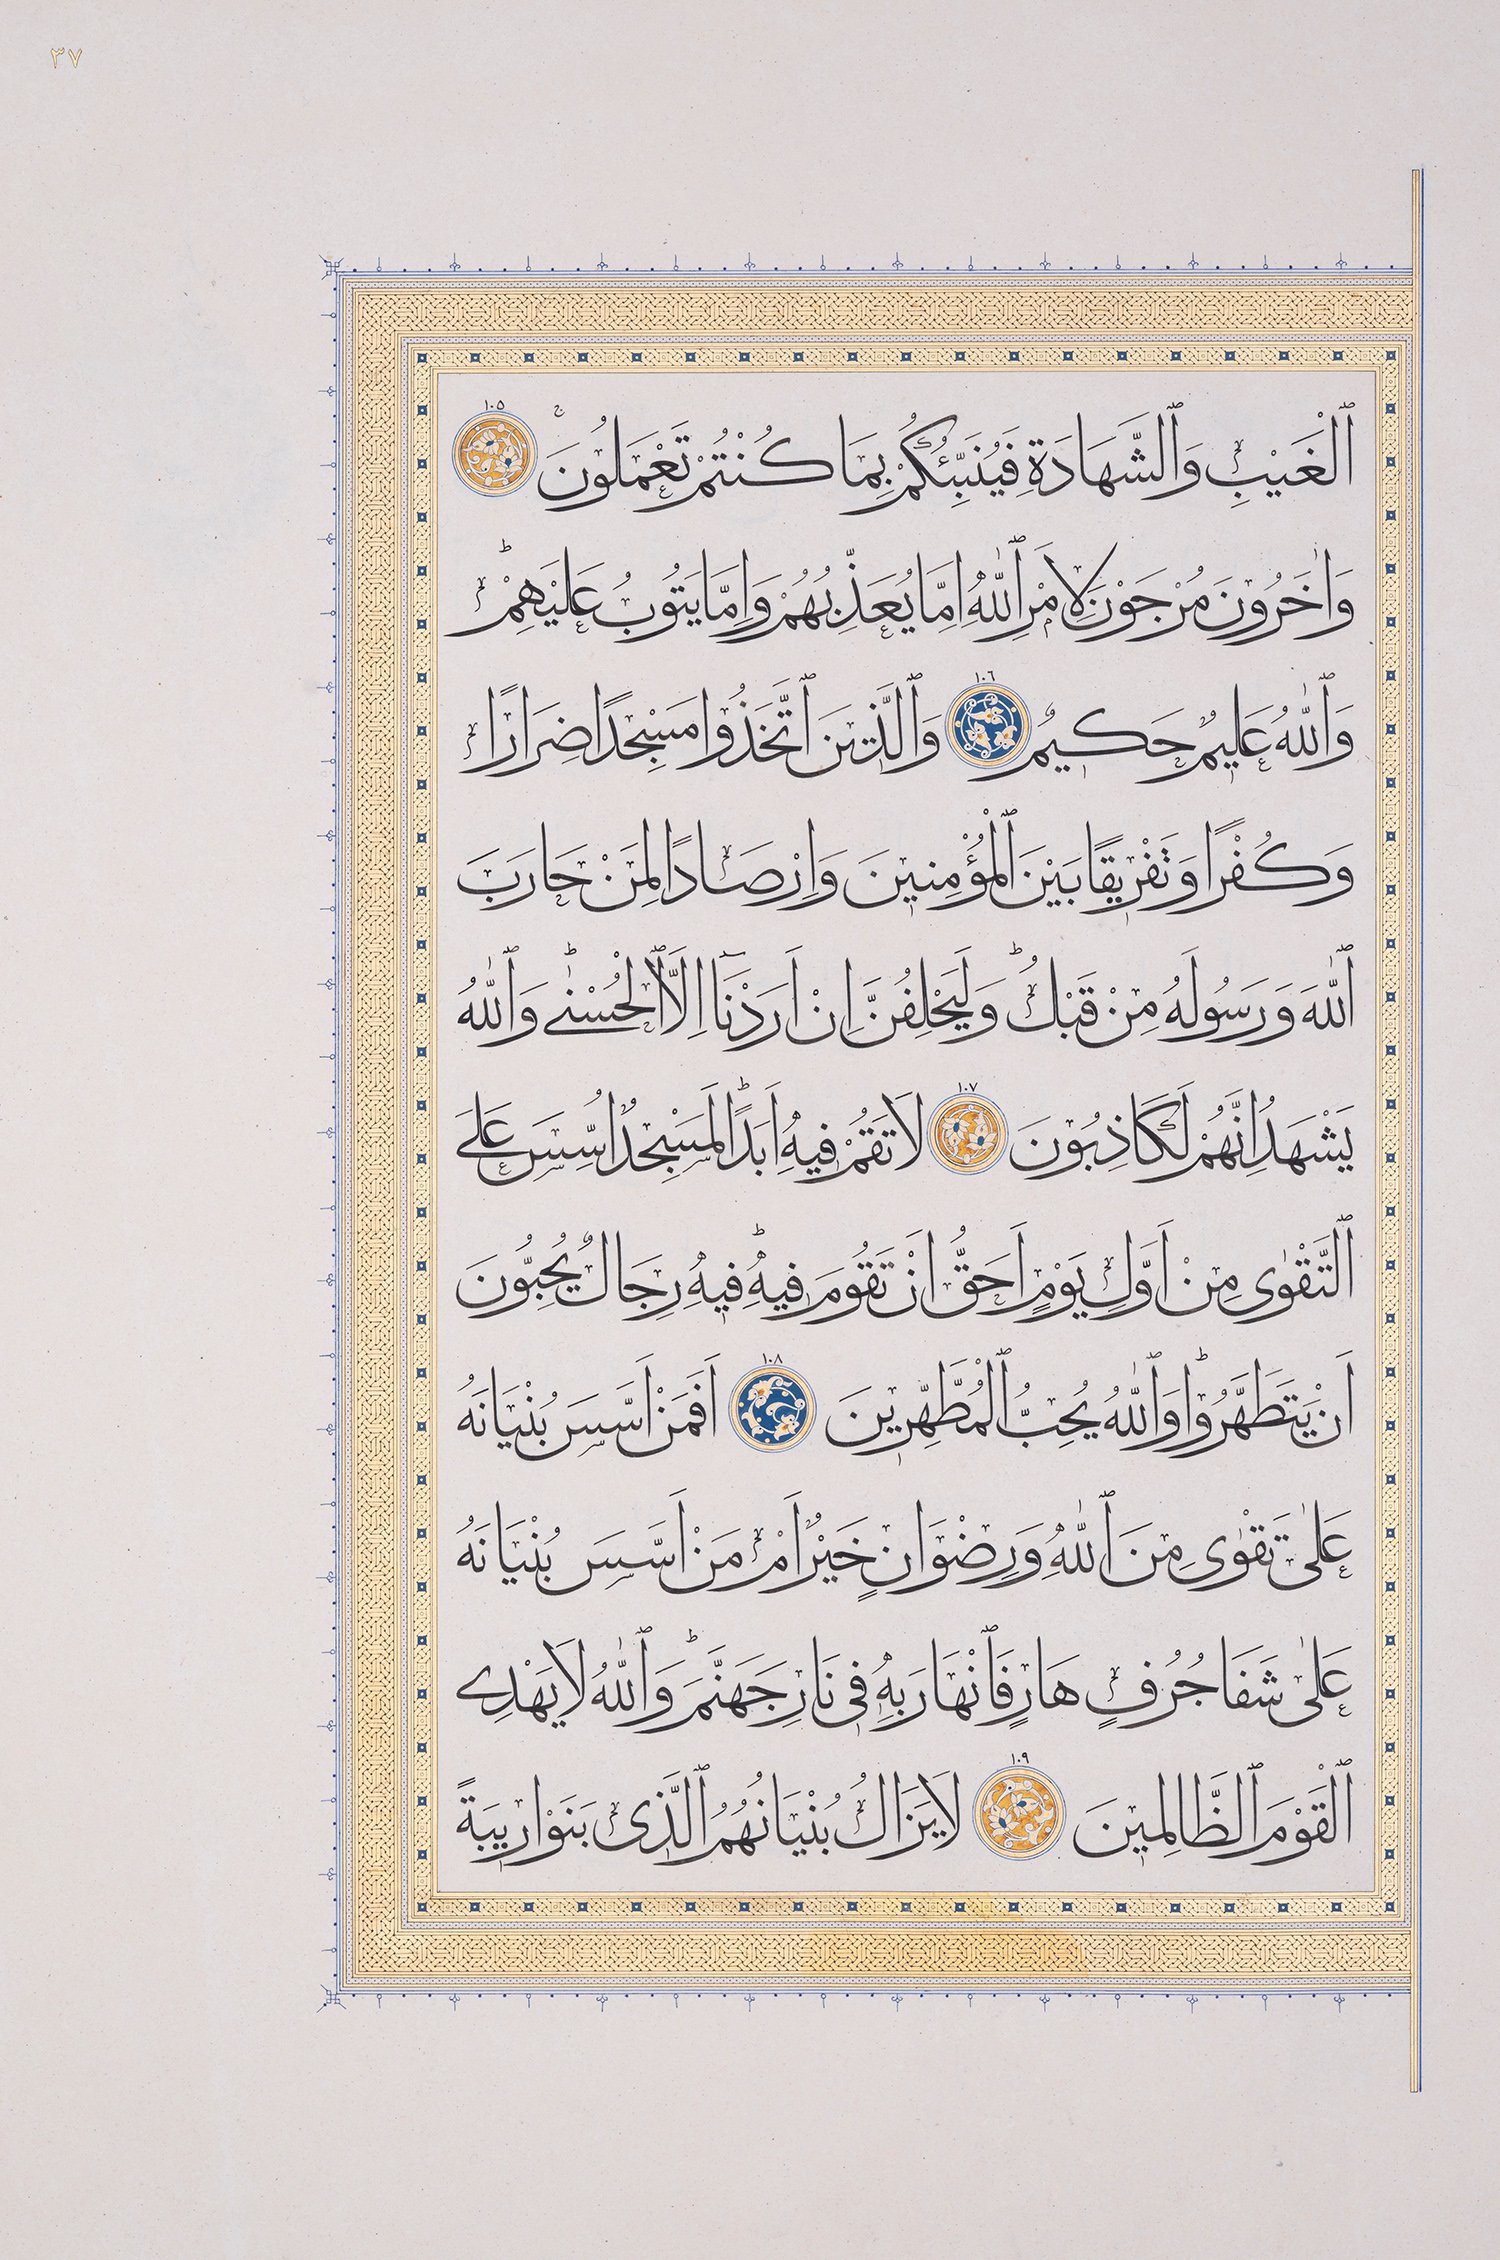 ٣٧
ٱلْغَيْبِ وَٱلشَّهَادَةِ فَيُنَبِّئُكُمْ بِمَا كُنْتُمْ تَعْمَلُونَۚ ١٠٥
وَاٰخَرُونَ مُرْجَوْنَ لِاَمْرِ ٱللّٰهِ اِمَّا يُعَذِّبُهُمْ وَاِمَّا يَتُوبُ عَلَيْهِمْؕ
وَٱللّٰهُ عَلِيمٌ حَكِيمٌ ١٠٦ وَٱلَّذِينَ ٱتَّخَذُوا مَسْجِدًا ضِرَارًا
وَكُفْرًا وَتَفْرِيقًا بَيْنَ ٱلْمُؤْمِنِينَ وَاِرْصَادًا لِمَنْ حَارَبَ
ٱللّٰهَ وَرَسُولَهُ مِنْ قَبْلُؕ وَلَيَحْلِفُنَّ اِنْ اَرَدْنَٓا اِلَّا ٱلْحُسْنٰىؕ وَٱللّٰهُ
يَشْهَدُ اِنَّهُمْ لَكَاذِبُونَ ١٠٧ لَا تَقُمْ فِيهِ اَبَدًاؕ لَمَسْجِدٌ اُسِّسَ عَلَى
ٱلتَّقْوٰى مِنْ اَوَّلِ يَوْمٍ اَحَقُّ اَنْ تَقُومَ فِيهِؕ فِيهِ رِجَالٌ يُحِبُّونَ
اَنْ يَتَطَهَّرُواؕ وَٱللّٰهُ يُحِبُّ ٱلْمُطَّهِّرِينَ ١٠٨ اَفَمَنْ اَسَّسَ بُنْيَانَهُ
عَلٰى تَقْوٰى مِنَ ٱللّٰهِ وَرِضْوَانٍ خَيْرٌ اَمْ مَنْ اَسَّسَ بُنْيَانَهُ
عَلٰى شَفَا جُرُفٍ هَارٍ فَٱنْهَارَ بِهِ فِى نَارِ جَهَنَّمَؕ وَٱللّٰهُ لَا يَهْدِى
ٱلْقَوْمَ ٱلظَّالِمِينَ ١٠٩ لَا يَزَالُ بُنْيَانُهُمُ ٱلَّذِى بَنَوْا رِيبَةً